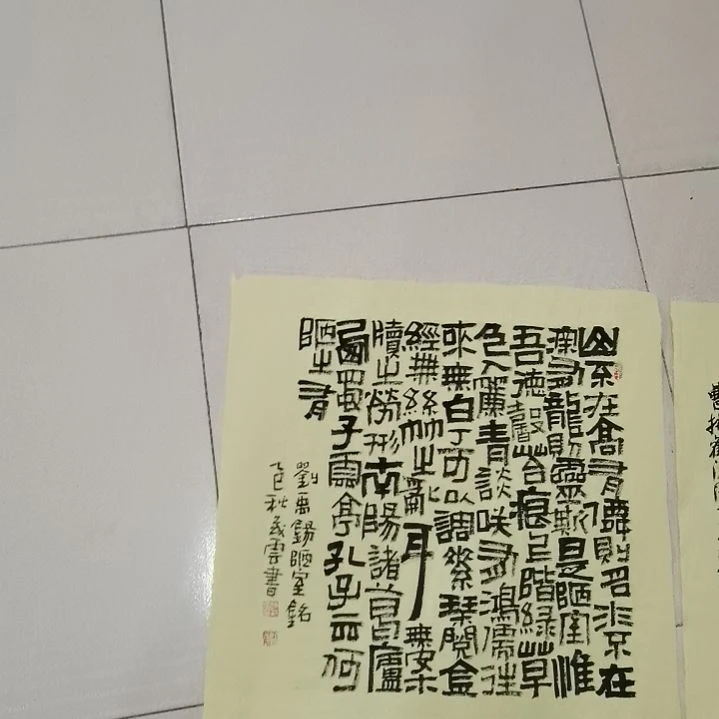 山不在高有僊則名水不在
深有龍則靈斯是陋室惟
吾德馨苔痕上階綠草
色入簾青談咲有鴻儒往
來無白丁可以調素琴閱金
經無絲竹之亂耳無案
牘之勞形南陽諸葛廬
西蜀子雲亭孔子云何
陋之有
劉禹錫陋室銘
乙巳秋義雲書